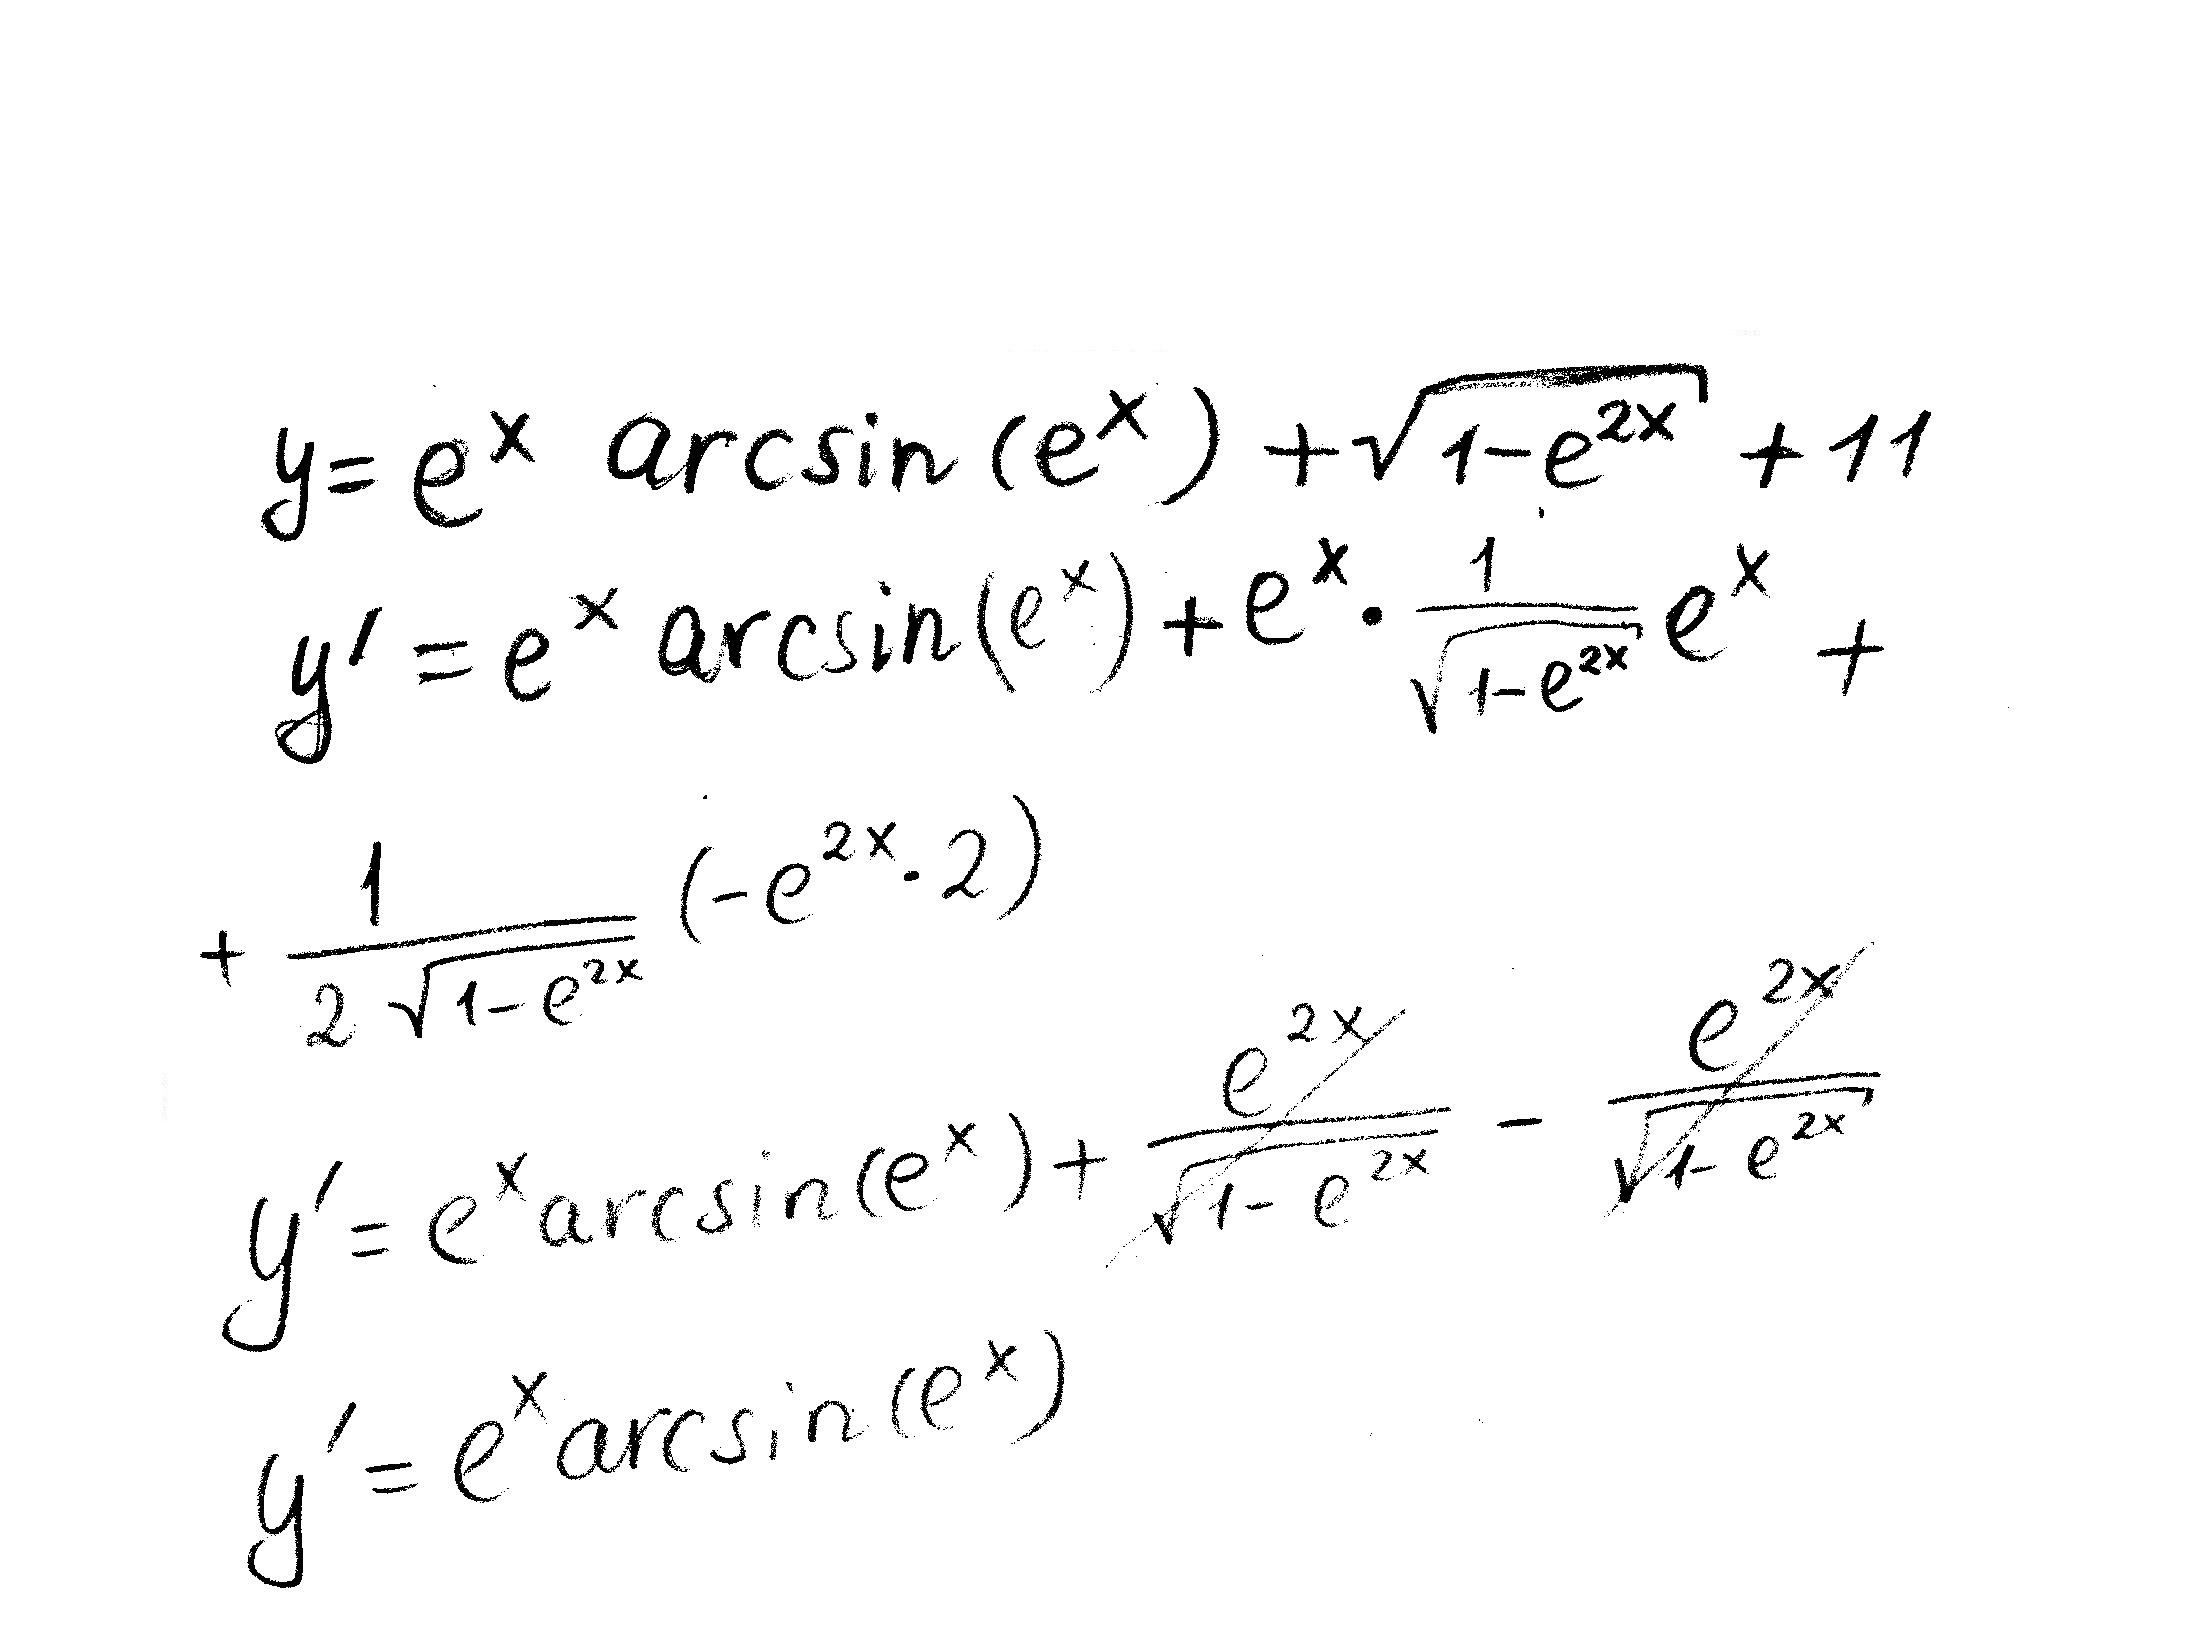 y = e^x arcsin(e^x) + √(1-e^(2x)) + 11
y' = e^x arcsin(e^x) + e^x · 1/√(1-e^(2x)) e^x +
+ 1/(2√(1-e^(2x))) (-e^(2x) · 2)
y' = e^x arcsin(e^x) + e^(2x)/√(1-e^(2x)) - e^(2x)/√(1-e^(2x))
y' = e^x arcsin(e^x)